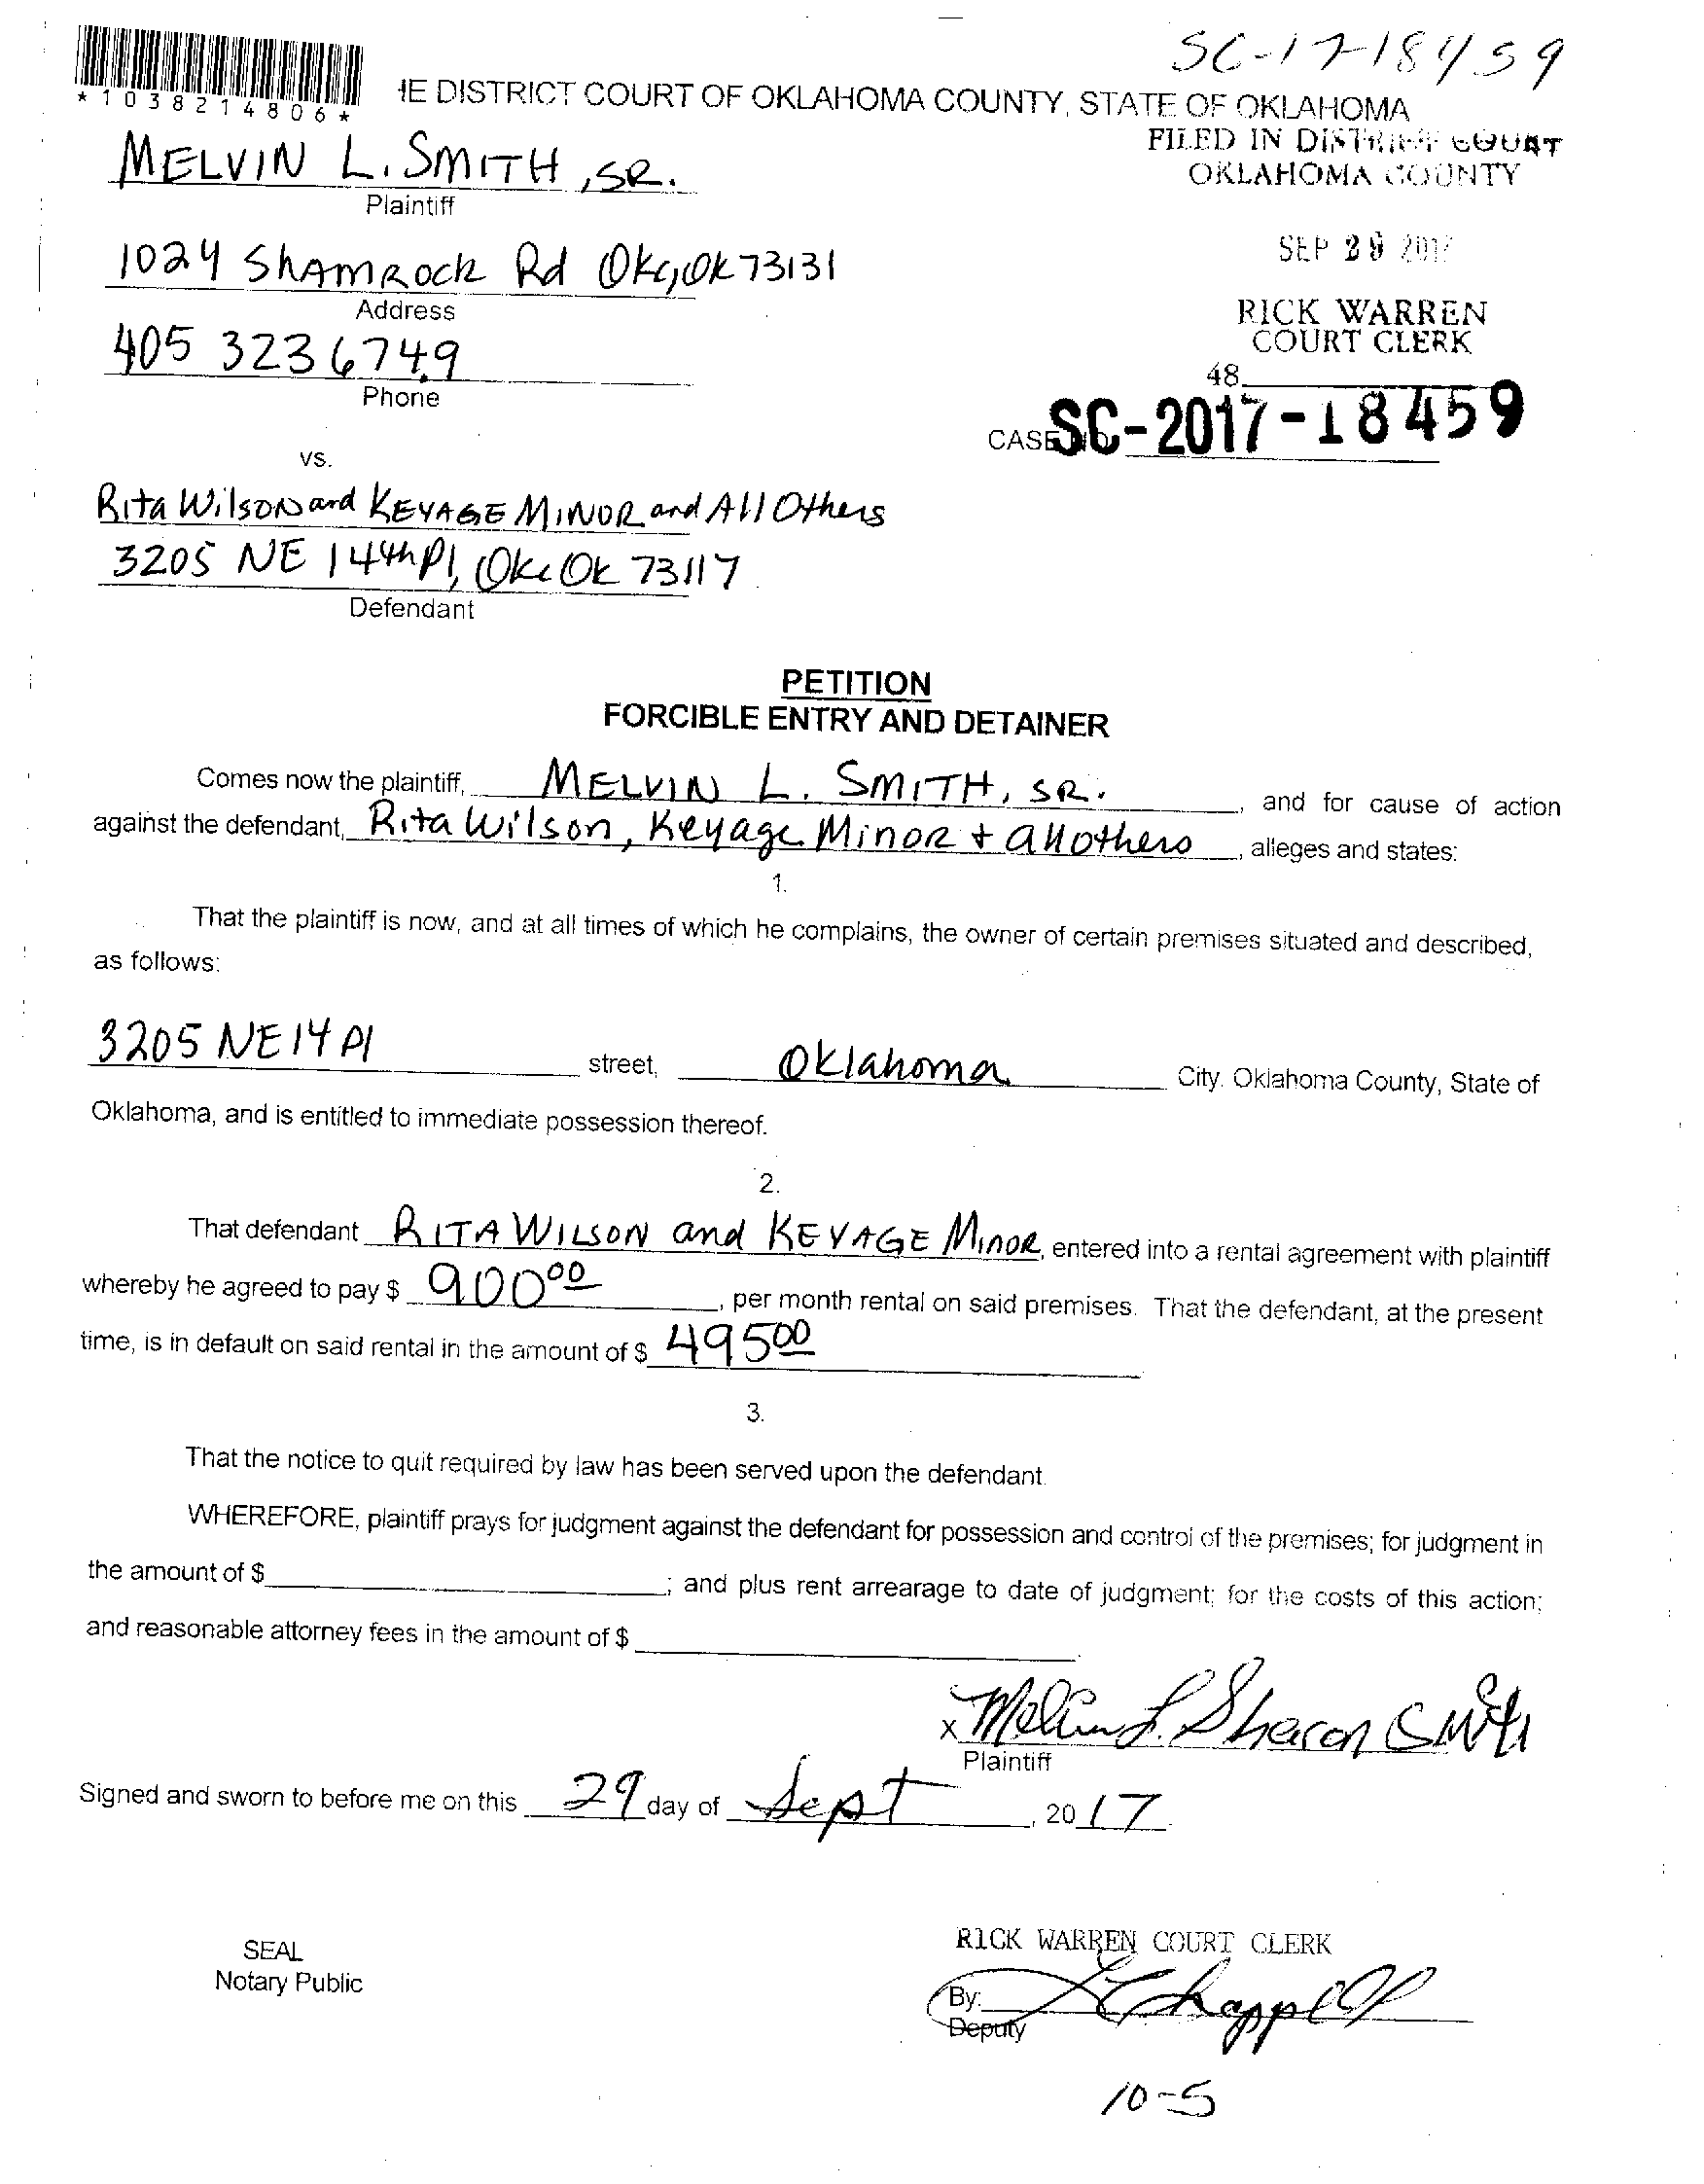 SC-17-18459
*1038214806*
IE DISTRICT COURT OF OKLAHOMA COUNTY, STATE OF OKLAHOMA
FILED IN DISTRICT COURT
OKLAHOMA COUNTY
MELVIN L. SMITH, SR.
Plaintiff
SEP 29 2017
1024 ShAmRock Rd OKC, OK 73131
Address
RICK WARREN
COURT CLERK
405 323 6749
Phone
48
CASE SC-2017-18459
vs.
Rita Wilson and KEYAGE MINOR and All Others
3205 NE 14th Pl, Okc Ok 73117
Defendant
PETITION
FORCIBLE ENTRY AND DETAINER
Comes now the plaintiff, MELVIN L. SMITH, SR. , and for cause of action
against the defendant, Rita Wilson, Keyage Minor + all others , alleges and states:
1.
That the plaintiff is now, and at all times of which he complains, the owner of certain premises situated and described,
as follows:
3205 NE 14 Pl street, Oklahoma City. Oklahoma County, State of
Oklahoma, and is entitled to immediate possession thereof.
2.
That defendant RITA WILSON and KEYAGE MINOR, entered into a rental agreement with plaintiff
whereby he agreed to pay $ 900 00 , per month rental on said premises. That the defendant, at the present
time, is in default on said rental in the amount of $ 495 00
3.
That the notice to quit required by law has been served upon the defendant.
WHEREFORE, plaintiff prays for judgment against the defendant for possession and control of the premises; for judgment in
the amount of $ ; and plus rent arrearage to date of judgment; for the costs of this action;
and reasonable attorney fees in the amount of $
x Melvin L. Sharon Smith
Plaintiff
Signed and sworn to before me on this 29 day of Sept , 20 17.
RICK WARREN COURT CLERK
SEAL
Notary Public
By:
Deputy
10-5